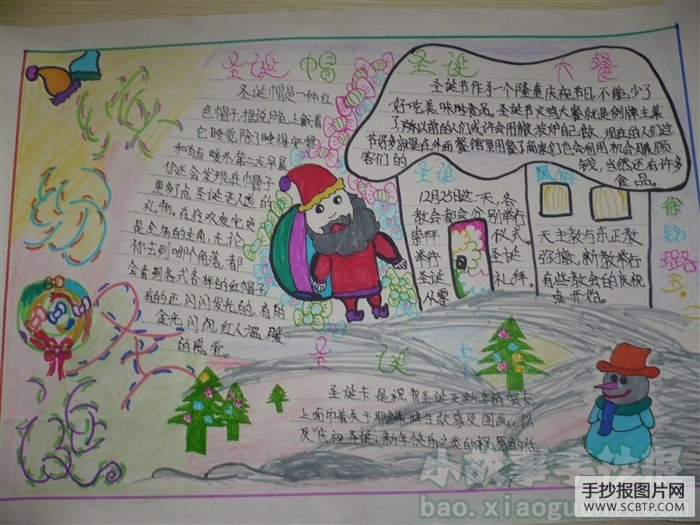 圣诞帽
圣诞帽是一种红
色帽子,据说晚上戴着
它睡觉除了睡得安稳
和有点暖外,第二天早晨
你还会发现在帽子
里多了点圣诞老人送的
礼物。在狂欢夜它更
是全场的主角,无论
你去到哪个角落,都
会看到各式各样的红帽子,
有的还闪闪发光的,有的
金光闪闪,红人温暖
的感觉。
圣诞大餐
圣诞节作为一个隆重庆祝节日,不能少了
好吃美味的食品。圣诞节火鸡大餐就是例牌主菜
了,以前的人们或许会用微波炉自己做,现在的人们过
节很多就是在外面餐馆里用餐了,商家们也会利用机会赚顾
客们的
钱,当然还有许多
食品。
风俗
12月25这一天,各
教会都会分别举行
崇拜仪式。
举行圣诞
圣诞礼拜。
天主教与东正教
弥撒,新教举行
有些教会的庆祝
点开始。
圣诞卡
圣诞卡是祝贺圣诞及新年的贺卡,
上面印着关于耶稣降生故事及图画,以
及"庆祝圣诞,新年快乐之类的祝愿的话。
小故事手抄报
bao.xiaogu
手抄报图片网
WWW.SCBTP.COM